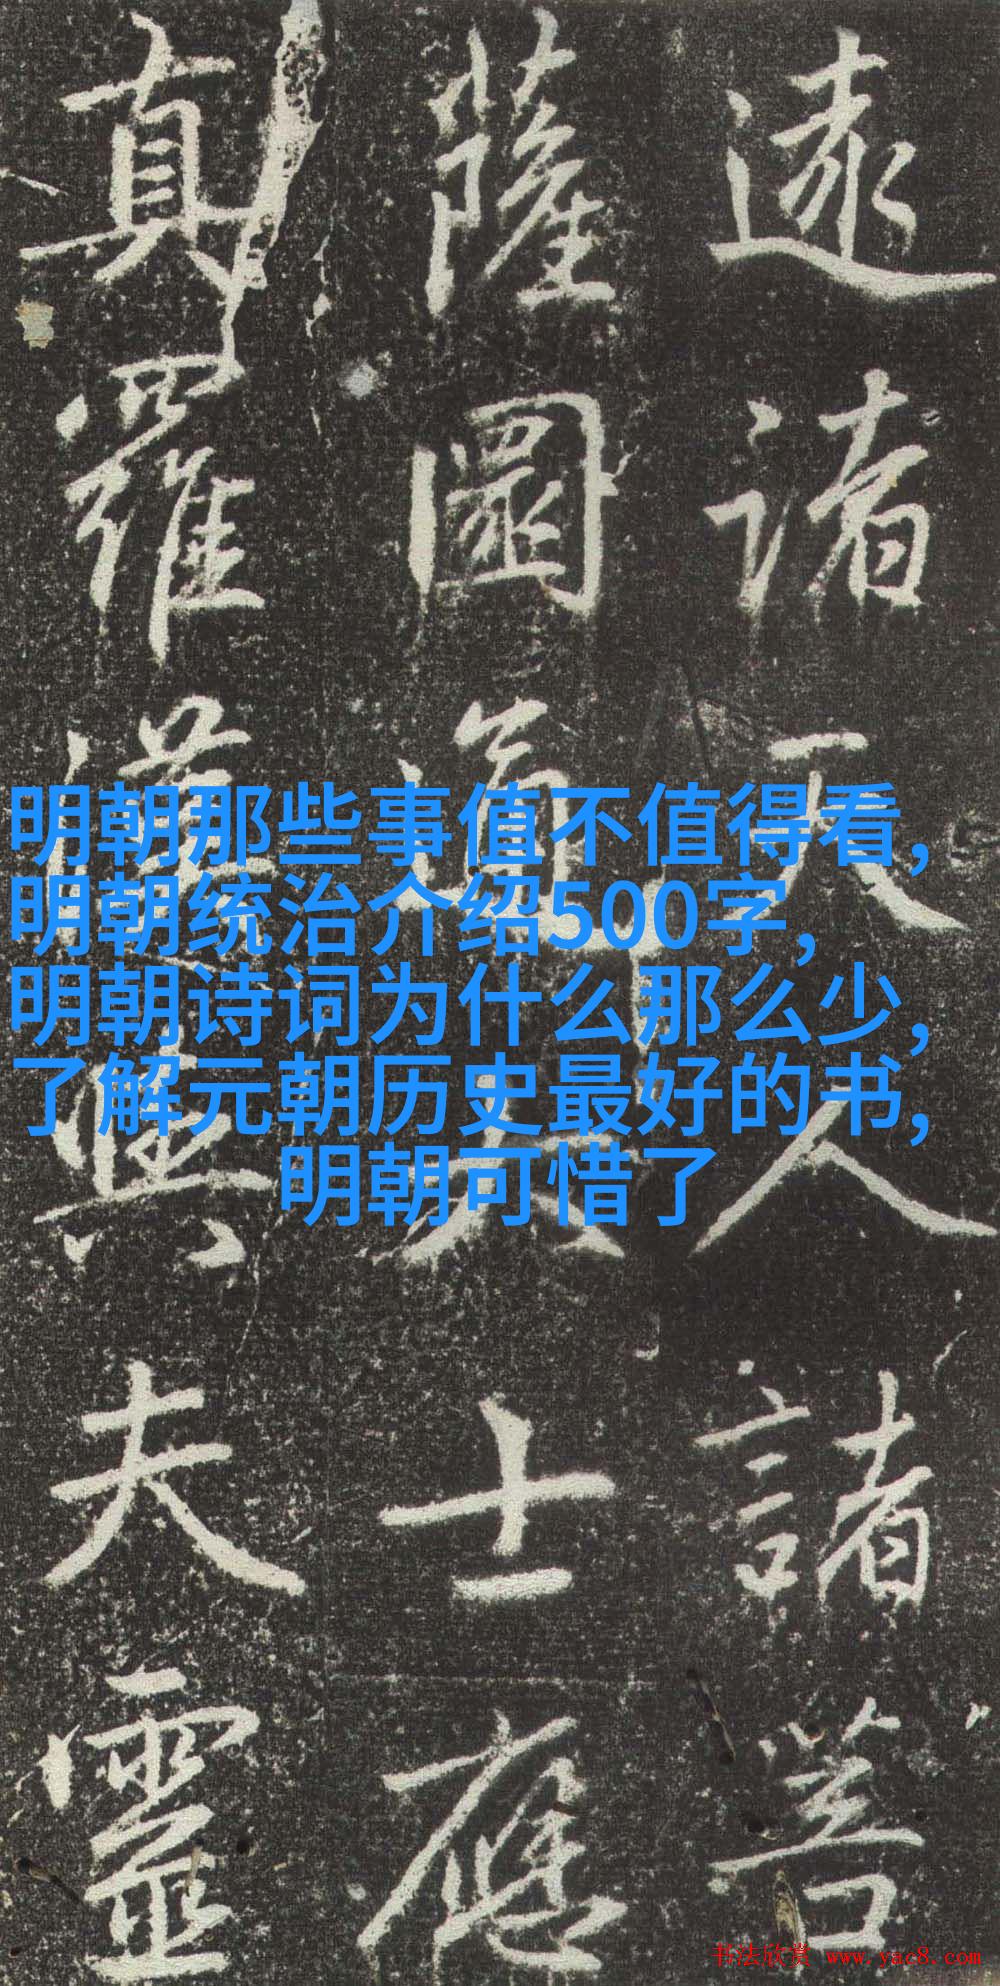 明朝那些事值不值得看,
明朝统治介绍500字,
明朝诗词为什么那么少,
了解元朝历史最好的书,
明朝可惜了
逮諸天人諸菩
薩圓通大士應
真羅漢與夫靈
书法欣赏 www.yac8.com